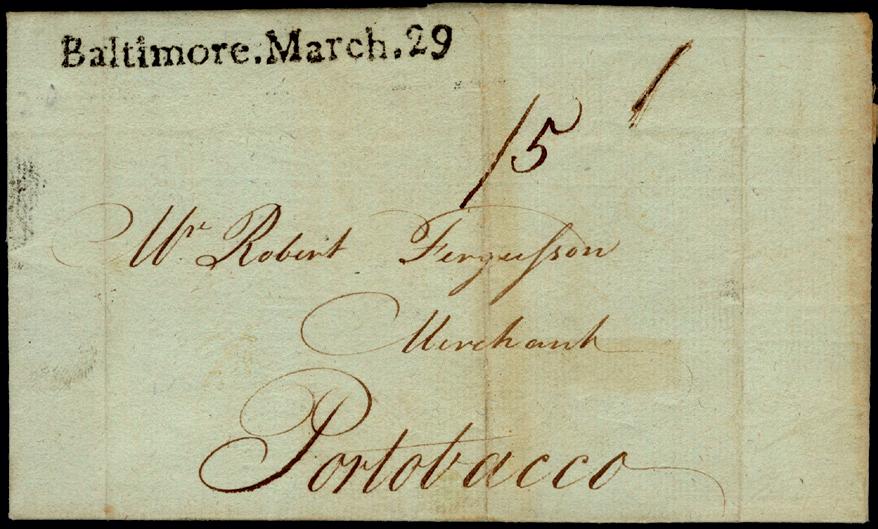 Baltimore.March.29
/5
Mr Robert Fergusson
Merchant
Portobacco